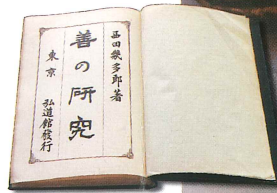 西田幾多郎著
善の研究
東京
弘道館發行